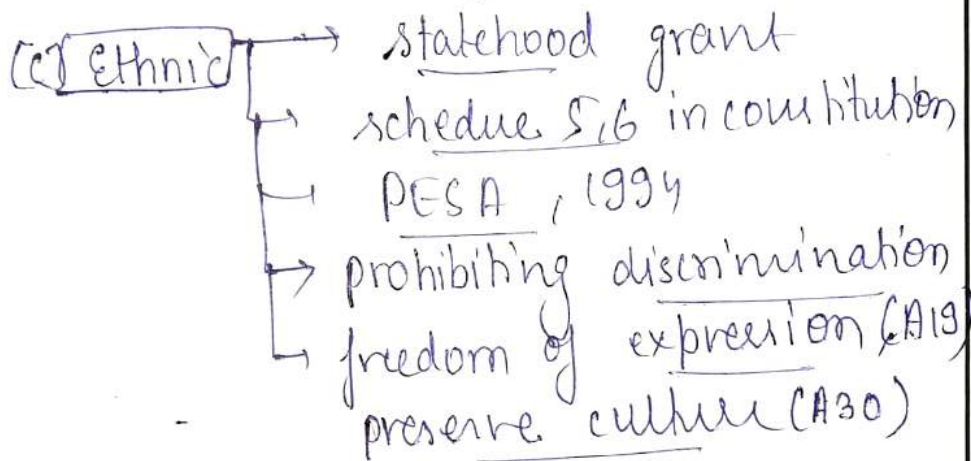 (c) Ethnic → statehood grant
→ schedue 5,6 in constitution
PESA, 1994
→ prohibiting discrimination
→ freedom of expression (A19)
preserve culture (A30)